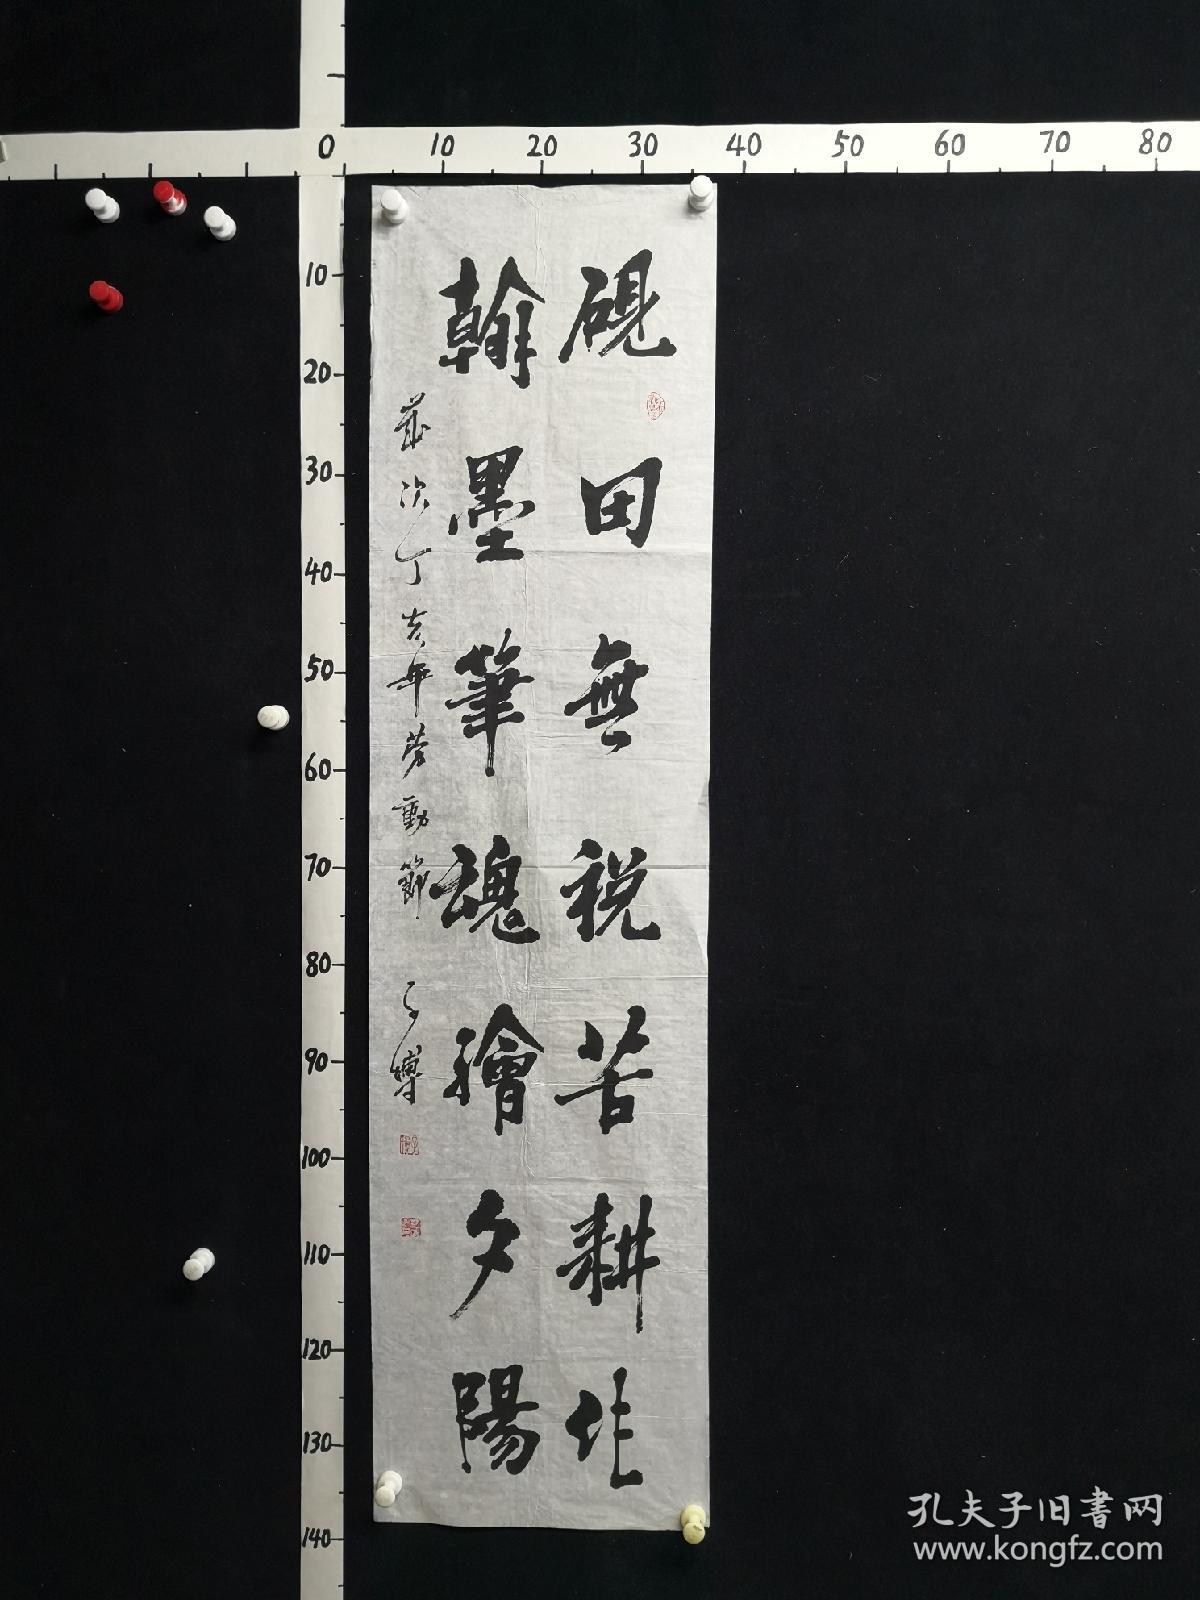 0 10 20 30 40 50 60 70 80
10
20
30
40
50
60
70
80
90
100
110
120
130
140
硯田無税苦耕作
翰墨筆魂繪夕陽
歲次丁亥年勞動節
孔夫子旧书网
www.kongfz.com